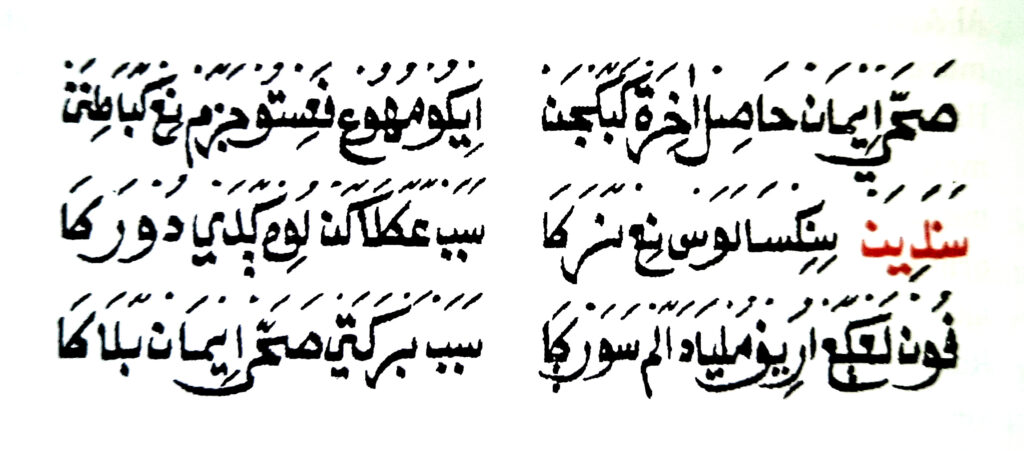 صَحَّي اِيْمَانْ حَاصِلْ اٰخِرَةْ كَبَكْجَنْ اِيْكُوْ مُهُوْع فَعِسْتُوْ جَزَمْ نِعْ كَبَاطِنَنْ
سَنَدِيَنْ سِنِكْسَا لَوَسْ نِعْ نَرَكَا سَبَبْ عَكَلَاكَنْ لَوُمْ دُوْرَكَا
فُوْنْ لَعْكَعْ اُرِيْفْ مُلْيَاهْ الَمْ سَوَرْكَا سَبَبْ بَرَكَتَيْ صَحَّي اِيْمَانْ بَلَاكَا